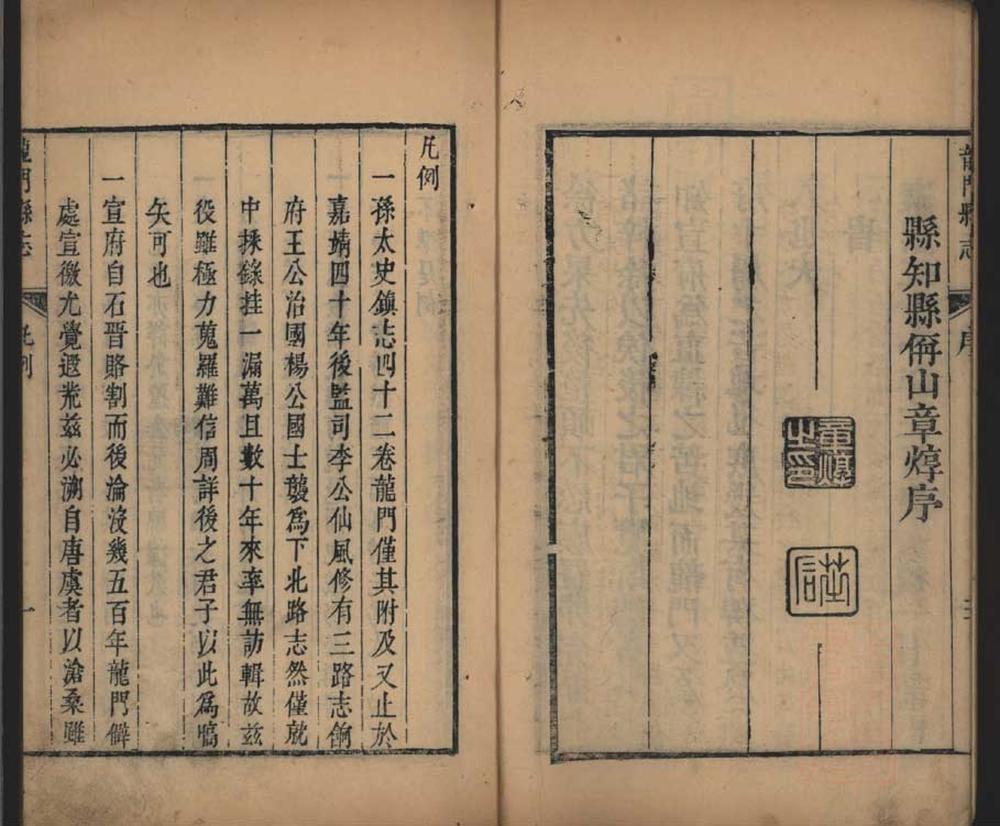 龍門縣志
序
縣知縣侢山章焞序
章焞之印
凡例
一孫太史鎮志四十二卷龍門僅其附及又止於
嘉靖四十年後監司李公仙風修有三路志餉
府王公治國楊公國士襲為下北路志然僅就
中採錄挂一漏萬且數十年來率無訪輯故茲
役雖極力蒐羅難信周詳後之君子以此為嚆
矢可也
一宣府自石晉賂割而後淪沒幾五百年龍門僻
處宣徼尤覺遐荒茲必溯自唐虞者以滄桑雖
龍門縣志
凡例
一